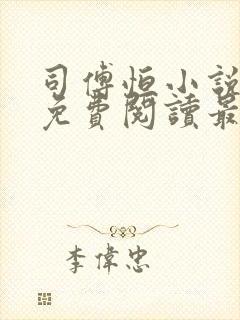 司傅恒小說
免費閱讀最
李偉忠